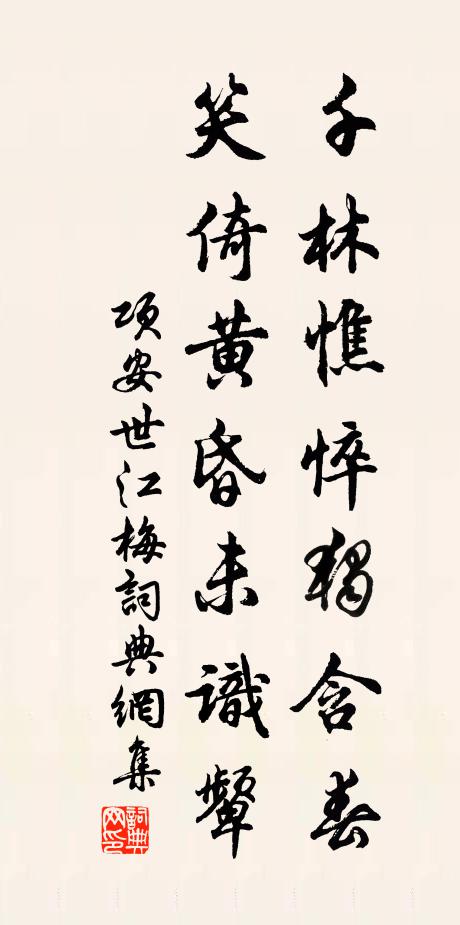 千林憔悴獨含春
笑倚黃昏未識顰
項安世江梅詞典網集
詞典網印